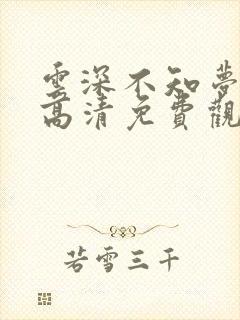 雲深不知夢
高清免費觀
若雪三千